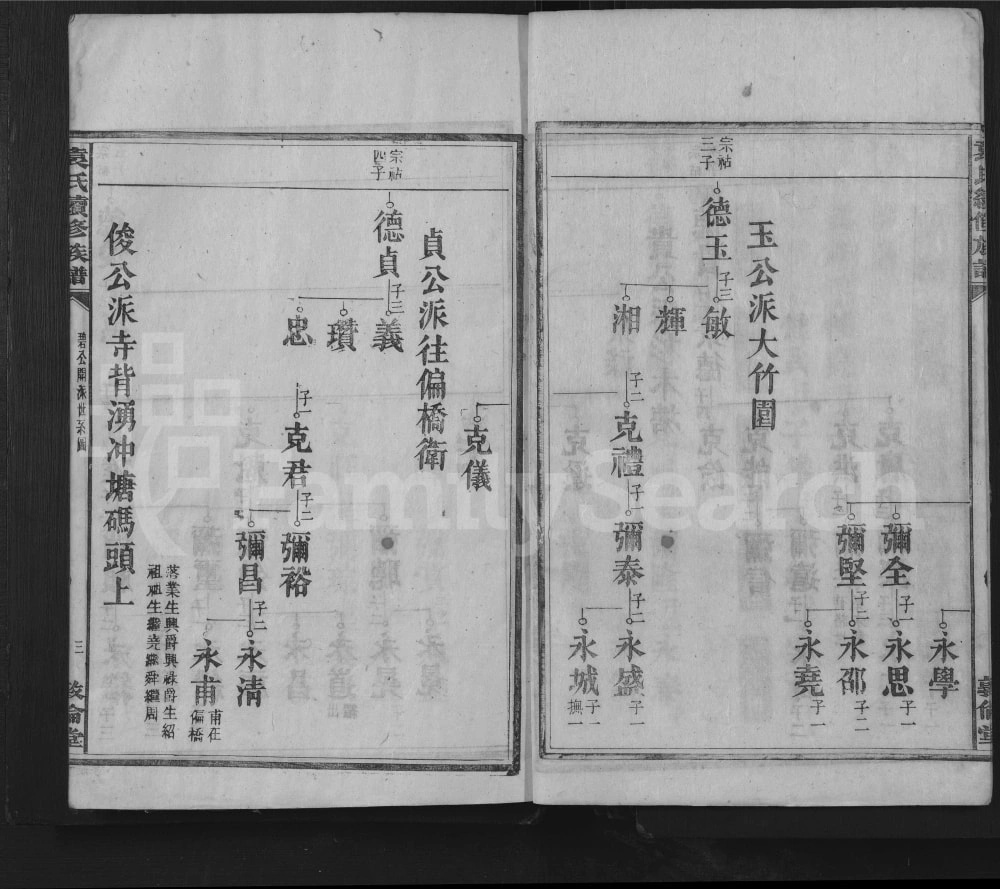 永學
彌全 子一 永思 子一
彌堅 子二 永邵 子二
永堯 子一
玉公派大竹園
宗祜三子
德玉 子三 敏
輝
湘 子二 克禮 子一 彌泰 子二 永盛 子一
永城 子一 撫一
克儀
貞公派往偏橋衛
宗祜四子
德貞 子三 義
瓚
忠 子一 克君 子二 彌裕
彌昌 子二 永清
永甫 甫在偏橋
落業生興爵興祿爵生紹
祖祖生繼堯繼舜繼周
俊公派寺背湧冲塘碼頭上
袁氏續修族譜
碧公開派世系圖
三
敦倫堂
FamilySearch